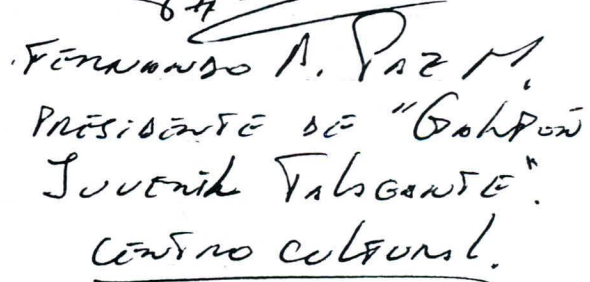 FERNANDO A. PAZ M.
PRESIDENTE DE "GALPÓN
JUVENIL TALAGANTE".
CENTRO CULTURAL.